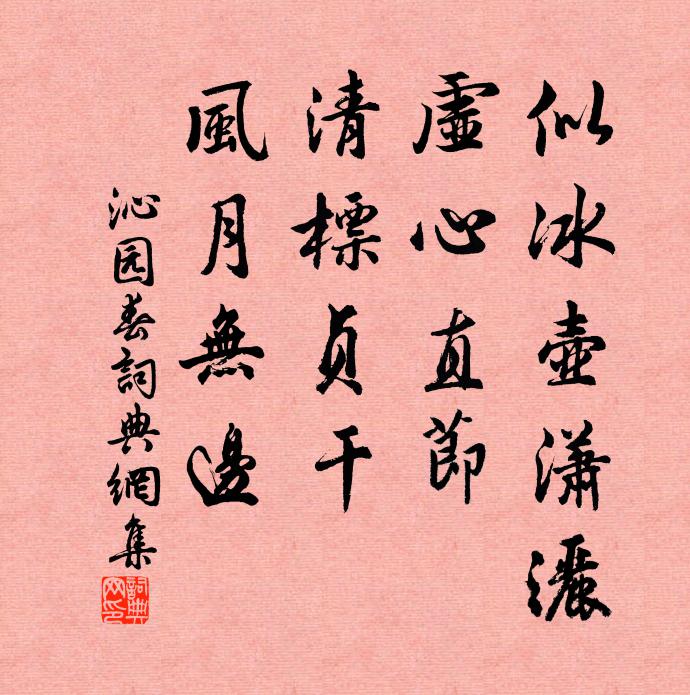 似冰壺瀟灑
虛心直節
清標貞干
風月無邊
沁园春詞典網集
詞典网印